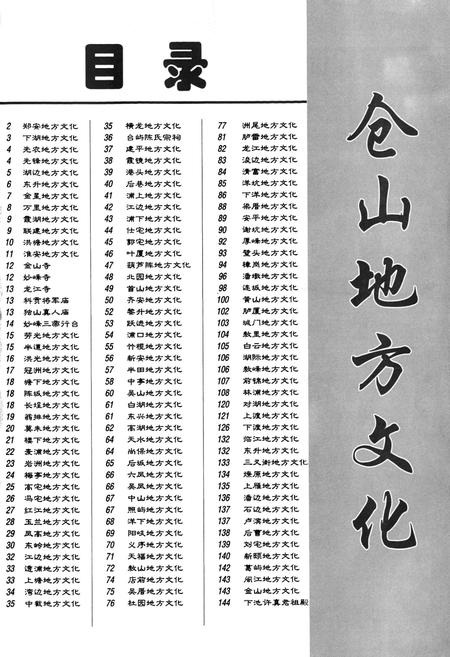 目录
2 郑安地方文化
3 下湖地方文化
4 先农地方文化
4 先锋地方文化
5 湖边地方文化
6 东升地方文化
7 金星地方文化
8 万里地方文化
9 霞湖地方文化
9 联建地方文化
10 洪塘地方文化
11 淮安地方文化
12 金山寺
12 妙峰寺
13 龙江寺
13 科贡将军庙
13 独山真人庙
14 妙峰三帝行台
15 劳光地方文化
15 半道地方文化
16 洪光地方文化
17 冠洲地方文化
18 塘下地方文化
18 陈坂地方文化
18 长埕地方文化
19 葫排地方文化
20 莫朱地方文化
21 楼下地方文化
22 景浦地方文化
23 岩洲地方文化
24 梅亭地方文化
25 高宅地方文化
26 冯宅地方文化
27 红江地方文化
28 玉兰地方文化
29 凤高地方文化
30 东岭地方文化
32 江边地方文化
33 透浦地方文化
33 上塘地方文化
34 湾边地方文化
35 中截地方文化
35 横龙地方文化
36 台屿陈氏宗祠
37 建平地方文化
38 霞镜地方文化
39 港头地方文化
40 后巷地方文化
41 浦上地方文化
42 江边地方文化
43 浦下地方文化
44 仕宅地方文化
45 郭宅地方文化
46 叶厦地方文化
47 葫芦阵地方文化
48 北园地方文化
49 首山地方文化
50 齐安地方文化
52 黎升地方文化
53 跃进地方文化
54 浦口地方文化
55 竹榄地方文化
56 新安地方文化
57 半田地方文化
58 中亭地方文化
60 吴山地方文化
61 白湖地方文化
61 东兴地方文化
62 高湖地方文化
64 天水地方文化
64 尚保地方文化
65 后坂地方文化
66 六凤地方文化
66 吴凤地方文化
67 中山地方文化
67 照屿地方文化
68 洋下地方文化
69 阳岐地方文化
70 义序地方文化
71 天福地方文化
72 敖山地方文化
74 店前地方文化
75 吴厝地方文化
76 社园地方文化
77 洲尾地方文化
81 胪雷地方文化
82 龙江地方文化
83 浚边地方文化
84 清富地方文化
85 洋坑地方文化
86 下洋地方文化
88 梁厝地方文化
89 安平地方文化
90 谢坑地方文化
92 厚峰地方文化
93 壁头地方文化
94 樟岚地方文化
96 潘墩地方文化
98 连坂地方文化
100 黄山地方文化
102 胪厦地方文化
103 城门地方文化
104 敖里地方文化
105 白云地方文化
106 湖际地方文化
106 敖峰地方文化
107 前锦地方文化
108 林浦地方文化
120 对湖地方文化
121 上渡地方文化
126 下渡地方文化
132 临江地方文化
132 东升地方文化
133 三叉街地方文化
134 燎原地方文化
135 上雁地方文化
136 潘边地方文化
137 石边地方文化
137 卢滨地方文化
138 后曹地方文化
139 刘宅地方文化
140 新颐地方文化
142 葛屿地方文化
143 闽江地方文化
143 金山地方文化
144 下池许真君祖殿
仓山地方文化